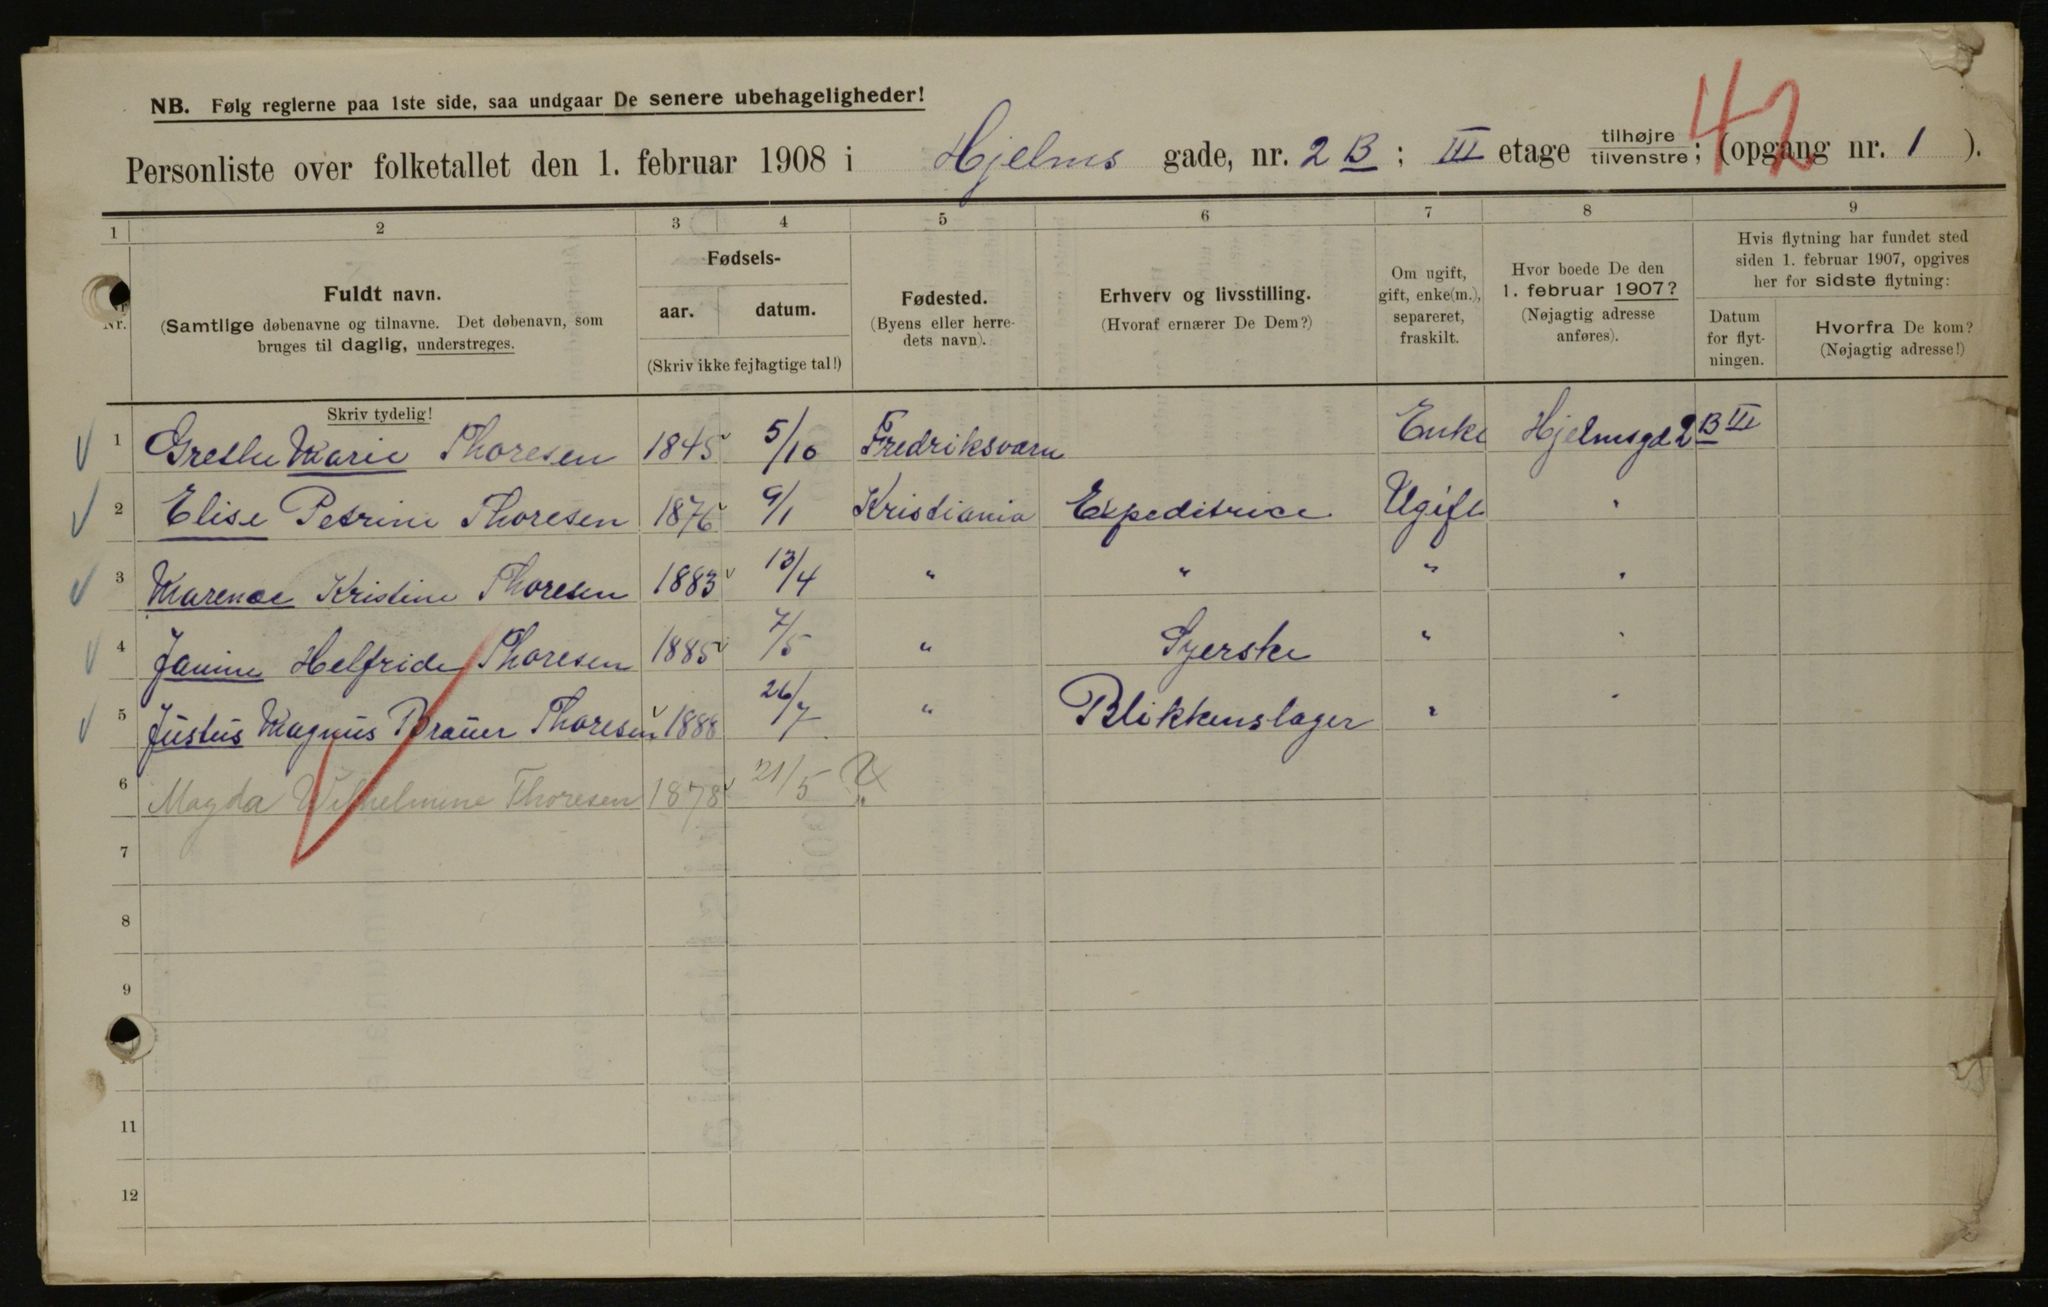 NB. Følg reglerne paa 1ste side, saa undgaar De senere ubehageligheder!
42
Personliste over folketallet den 1. februar 1908 i Hjelms gade, nr. 2 B ; III etage tilhøjre / tilvenstre ; (opgang nr. 1 ).
1 2 3 4 5 6 7 8 9
Nr.
Fuldt navn.
(Samtlige døbenavne og tilnavne. Det døbenavn, som
bruges til daglig, understreges.
Skriv tydelig!
Fødsels-
aar. datum.
(Skriv ikke fejlagtige tal!)
Fødested.
(Byens eller herre-
dets navn).
Erhverv og livsstilling.
(Hvoraf ernærer De Dem?)
Om ugift,
gift, enke(m.),
separeret,
fraskilt.
Hvor boede De den
1. februar 1907?
(Nøjagtig adresse
anføres).
Hvis flytning har fundet sted
siden 1. februar 1907, opgives
her for sidste flytning:
Datum
for flyt-
ningen.
Hvorfra De kom?
(Nøjagtig adresse!)
1 Grethe Marie Thoresen 1845 5/10 Fredriksværn Enke Hjelmsgd 2 B III
2 Elise Petrine Thoresen 1876 9/1 Kristiania Expeditrice Ugift "
3 Marenæ Kristine Thoresen 1883 13/4 " " " "
4 Janine Helfride Thoresen 1885 7/5 " Syerske " "
5 Justus Magnus Brauer Thoresen 1888 26/7 " Blikkenslager " "
6 Magda Wilhelmine Thoresen 1878 21/5 "
7
8
9
11
12